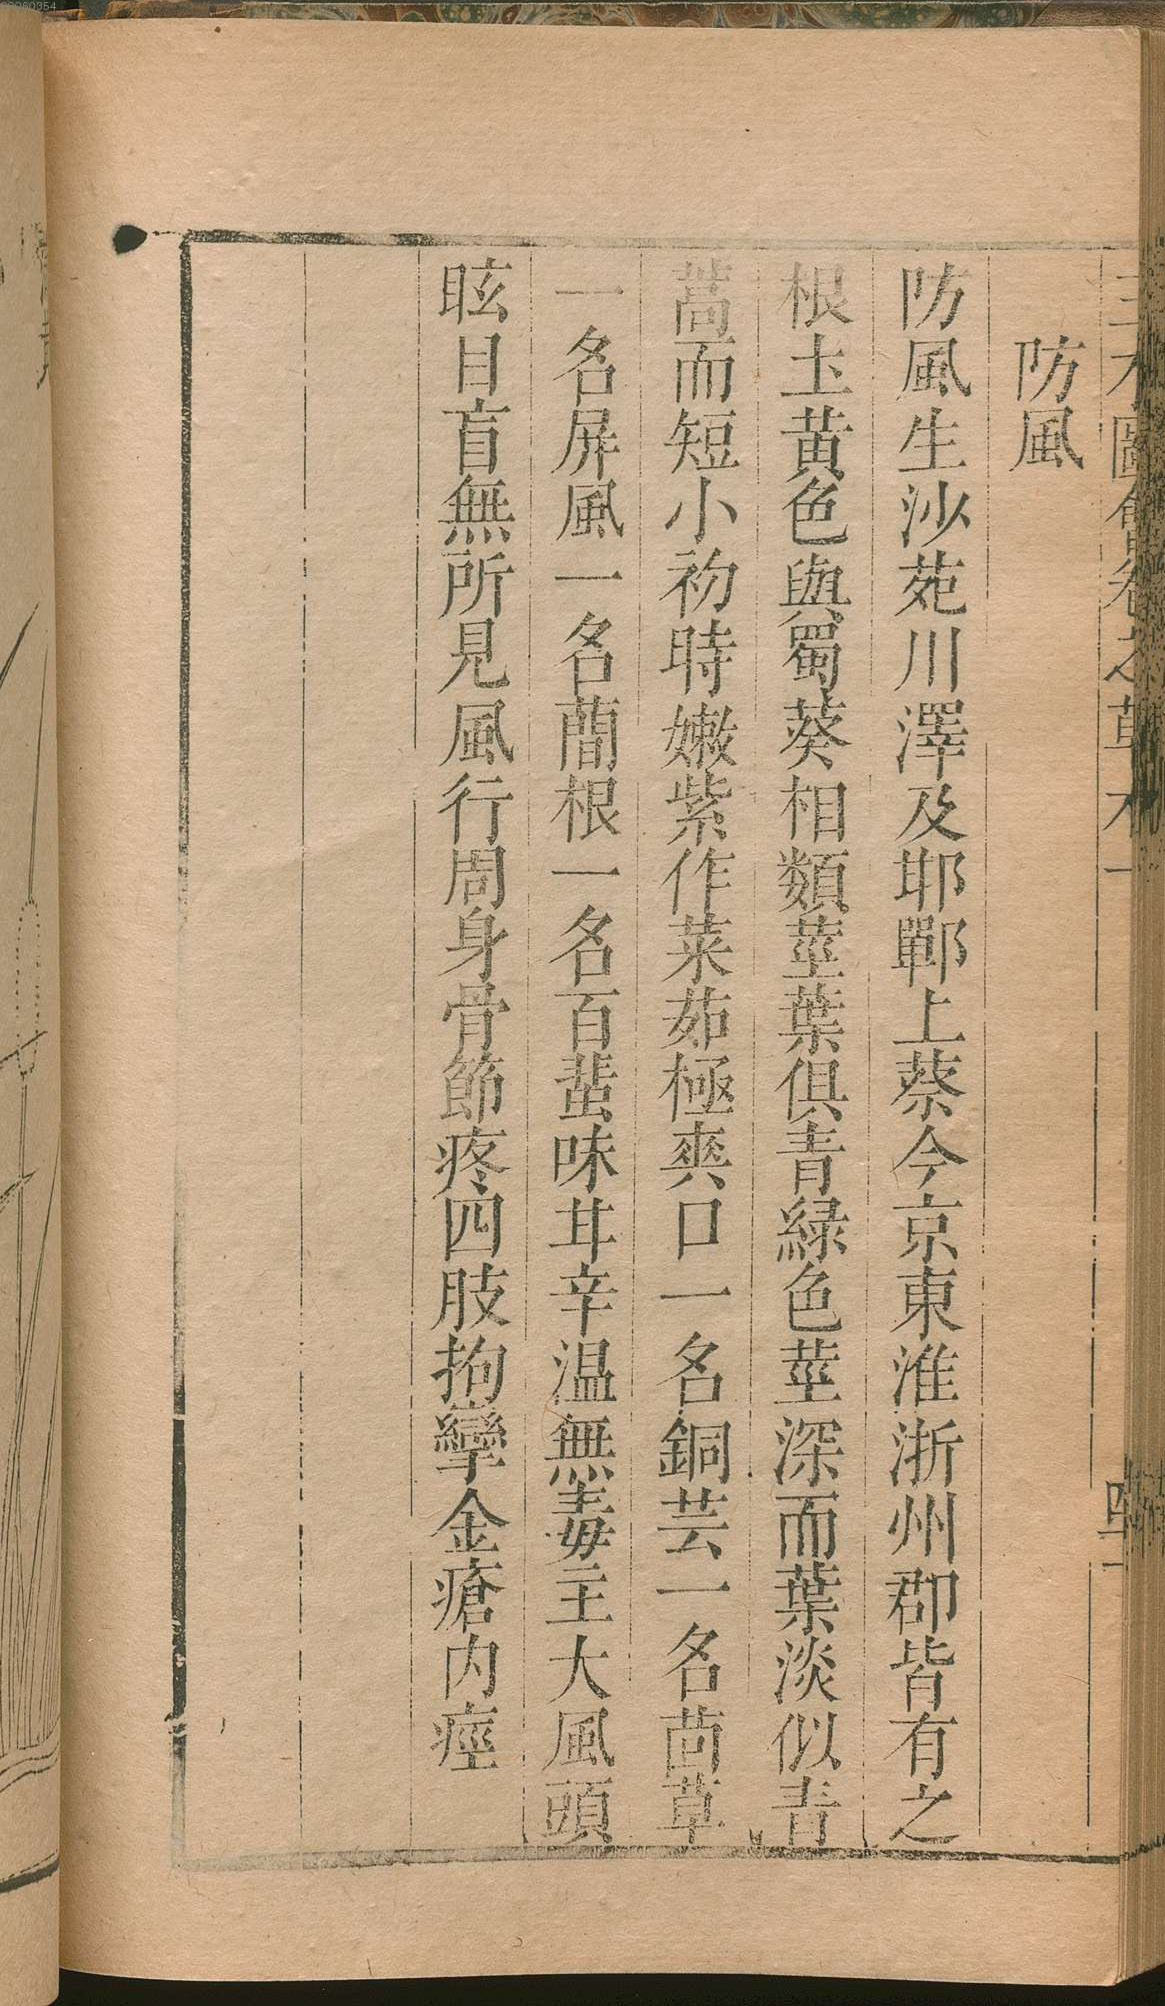 三才圖會卷之草木一
四十一
防風
防風生沙苑川澤及耶鄲上蔡今京東淮浙州郡皆有之
根土黃色與蜀葵相類莖葉俱青綠色莖深而葉淡似青
蒿而短小初時嫩紫作菜茹極爽口一名銅芸一名茴草
一名屏風一名蕳根一名百蜚味甘辛温無毒主大風頭
眩目盲無所見風行周身骨節疼四肢拘攣金瘡内痙